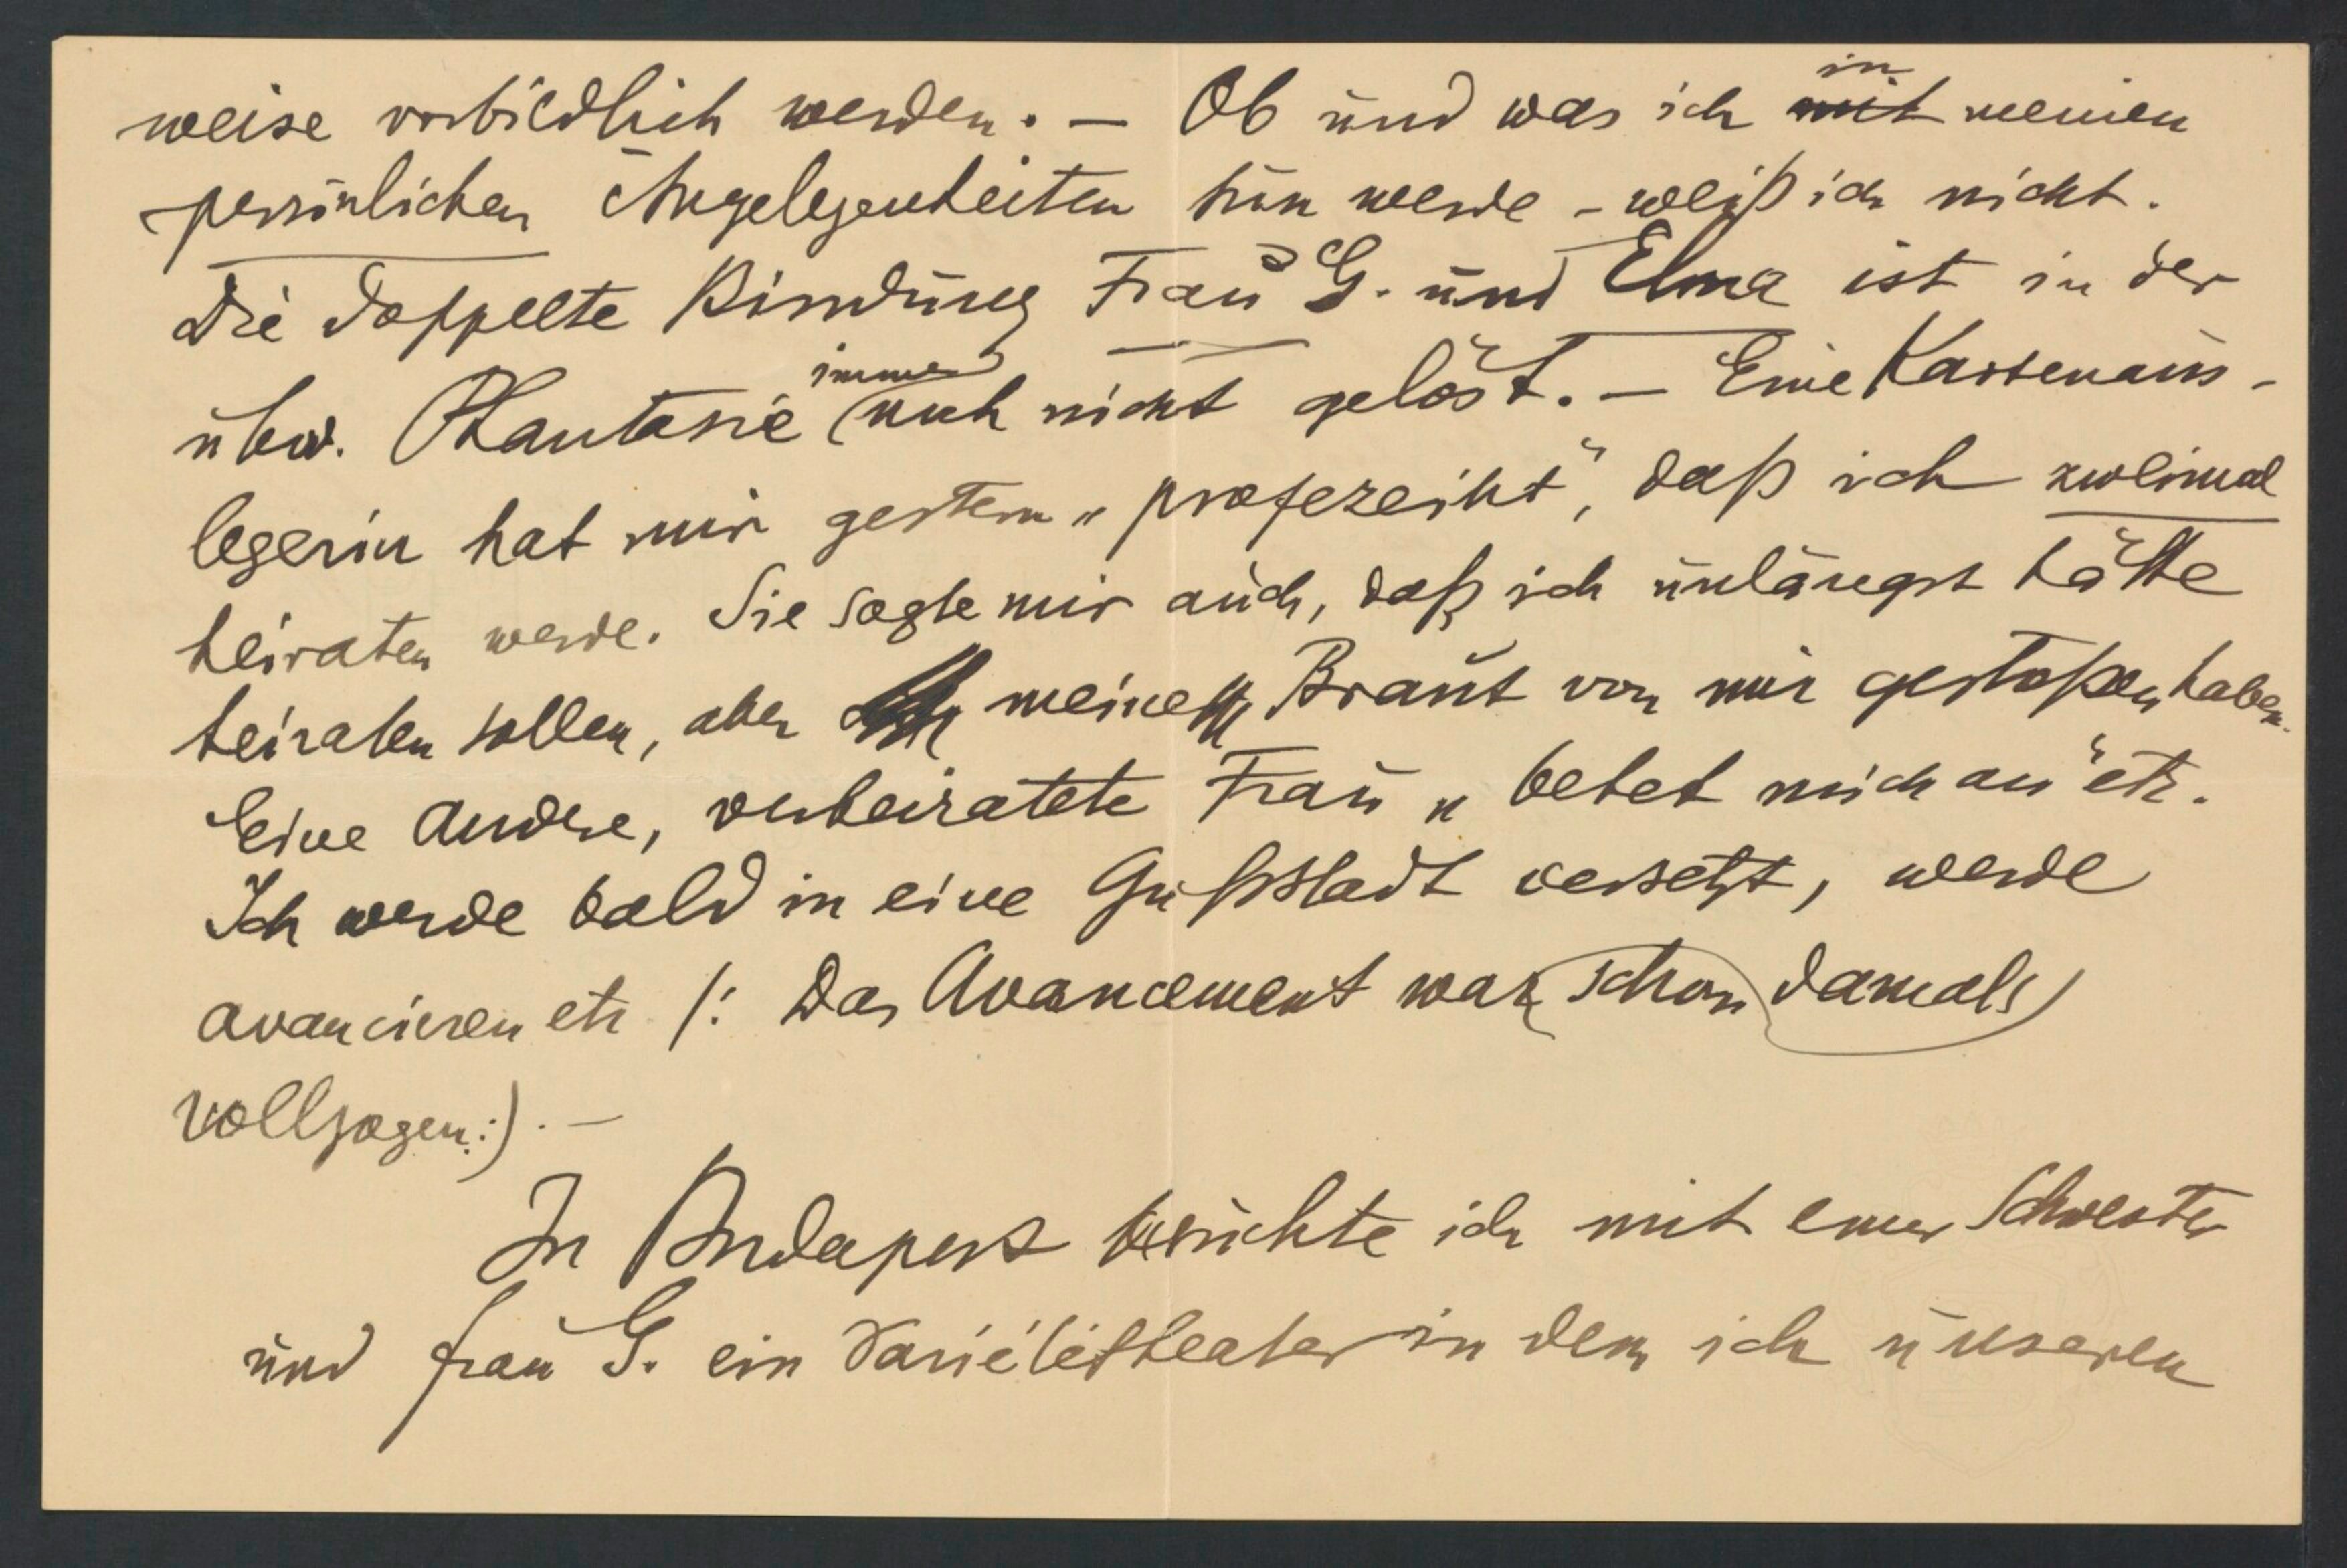 weise vorbildlich werden. — Ob und was ich in mit meinen
persönlichen Angelegenheiten tun werde – weiß ich nicht.
Die doppelte Bindung Frau G. und Elma ist in der
ubw. Phantasie immer noch nicht gelöst. — Eine Kartenaus-
legerin hat mir gestern „profezeiht“, daß ich zweimal
heiraten werde. Sie sagte mir auch, daß ich unlängst hätte
heiraten sollen, aber meine Braut von mir gestoßen haben.
Eine andere, verheiratete Frau „betet mich an“ etc.
Ich werde bald in eine Großstadt versetzt, werde
avancieren etc /: Das Avancement war schon damals
vollzogen :/. —
In Budapest besuchte ich mit einer Schwester
und Frau G. ein Variététheater in dem ich unseren